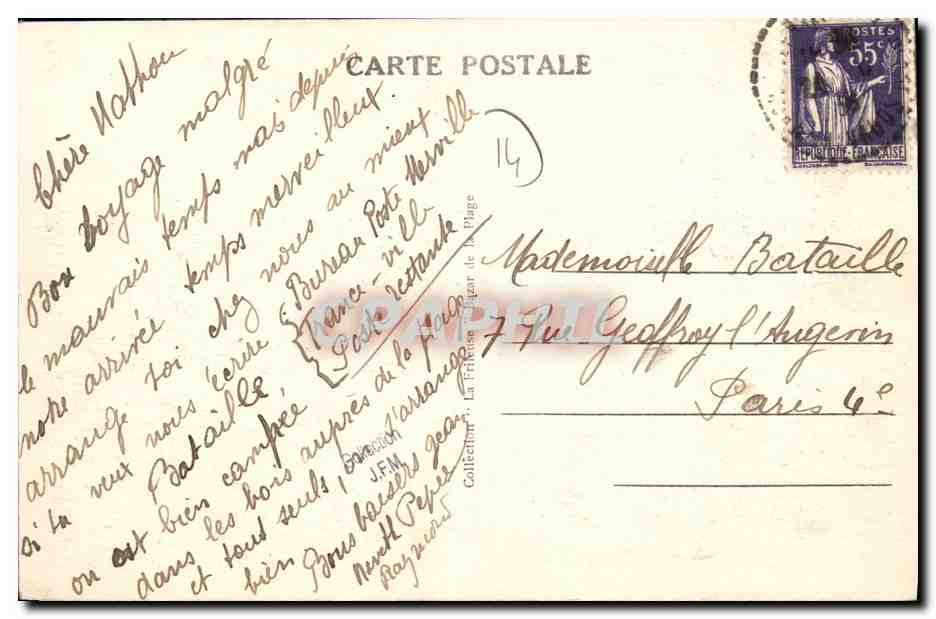 CARTE POSTALE
POSTES
55c
REPUBLIQUE FRANÇAISE
14
Chère
Bon voyage malgré
le mauvais temps mais depuis
notre arrivée temps merveilleux.
arrange toi chez nous au mieux
si tu veux nous écrire
Bataille
Bureau Poste Merville
France-ville
Poste restante
on est bien campé
dans les bois auprès de la plage
et tout seuls, s'arrange
bien Bons baisers
Pepée
Raymond
Mademoiselle Bataille
7 rue Geoffroy l'Angevin
Paris 4e
Collection La Frileuse Bazar de la Plage
Collection
J.F.M.
CPAPHIL